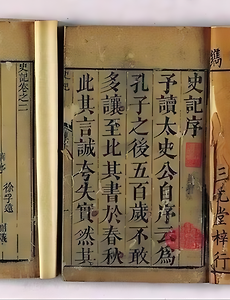 三元堂梓行
史記序
予讀太史公自序云為
孔子之後五百歲不敢
多讓至此其書於春秋
此其言誠夸失實然其
史記
史記卷之二
徐孚遠
測議